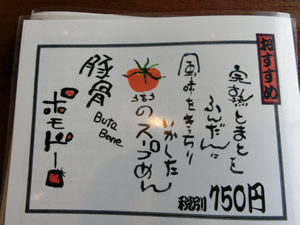 おすすめ
完熟とまとを
ふんだんに
風味をきっちり
いかした
のスープめん
豚骨
Buta
Bone
ポモドーロ
税別 750円